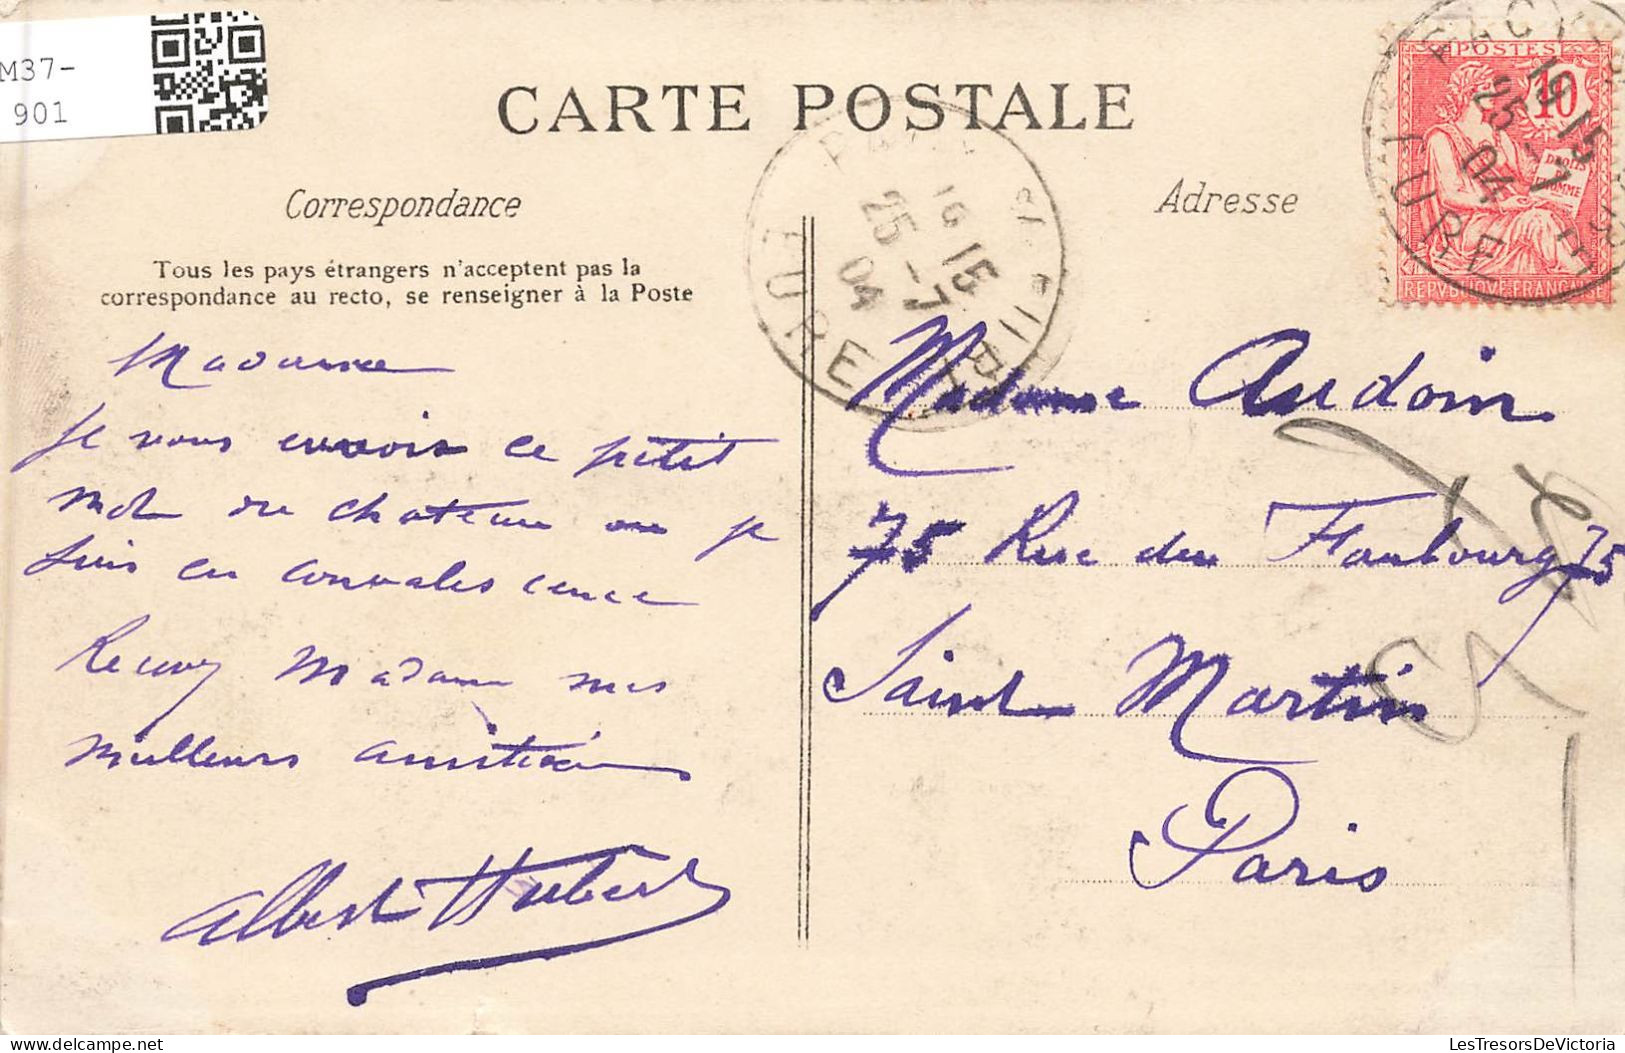 M37-
901
CARTE POSTALE
Correspondance
Adresse
Tous les pays étrangers n'acceptent pas la
correspondance au recto, se renseigner à la Poste
Madame
Je vous envois ce petit
mot du chateau ou je
suis en convalescence
Recevez Madame mes
meilleurs amitiés
Albert Hubert
Madame Audoin
75 Rue du Faubourg 75
Saint Martin
Paris
POSTES
10
DROITS
HOMME
REPUBLIQUE FRANÇAISE
19 15
25 -7
04
EURE
19 15
25 -7
04
EURE
LesTresorsDeVictoria